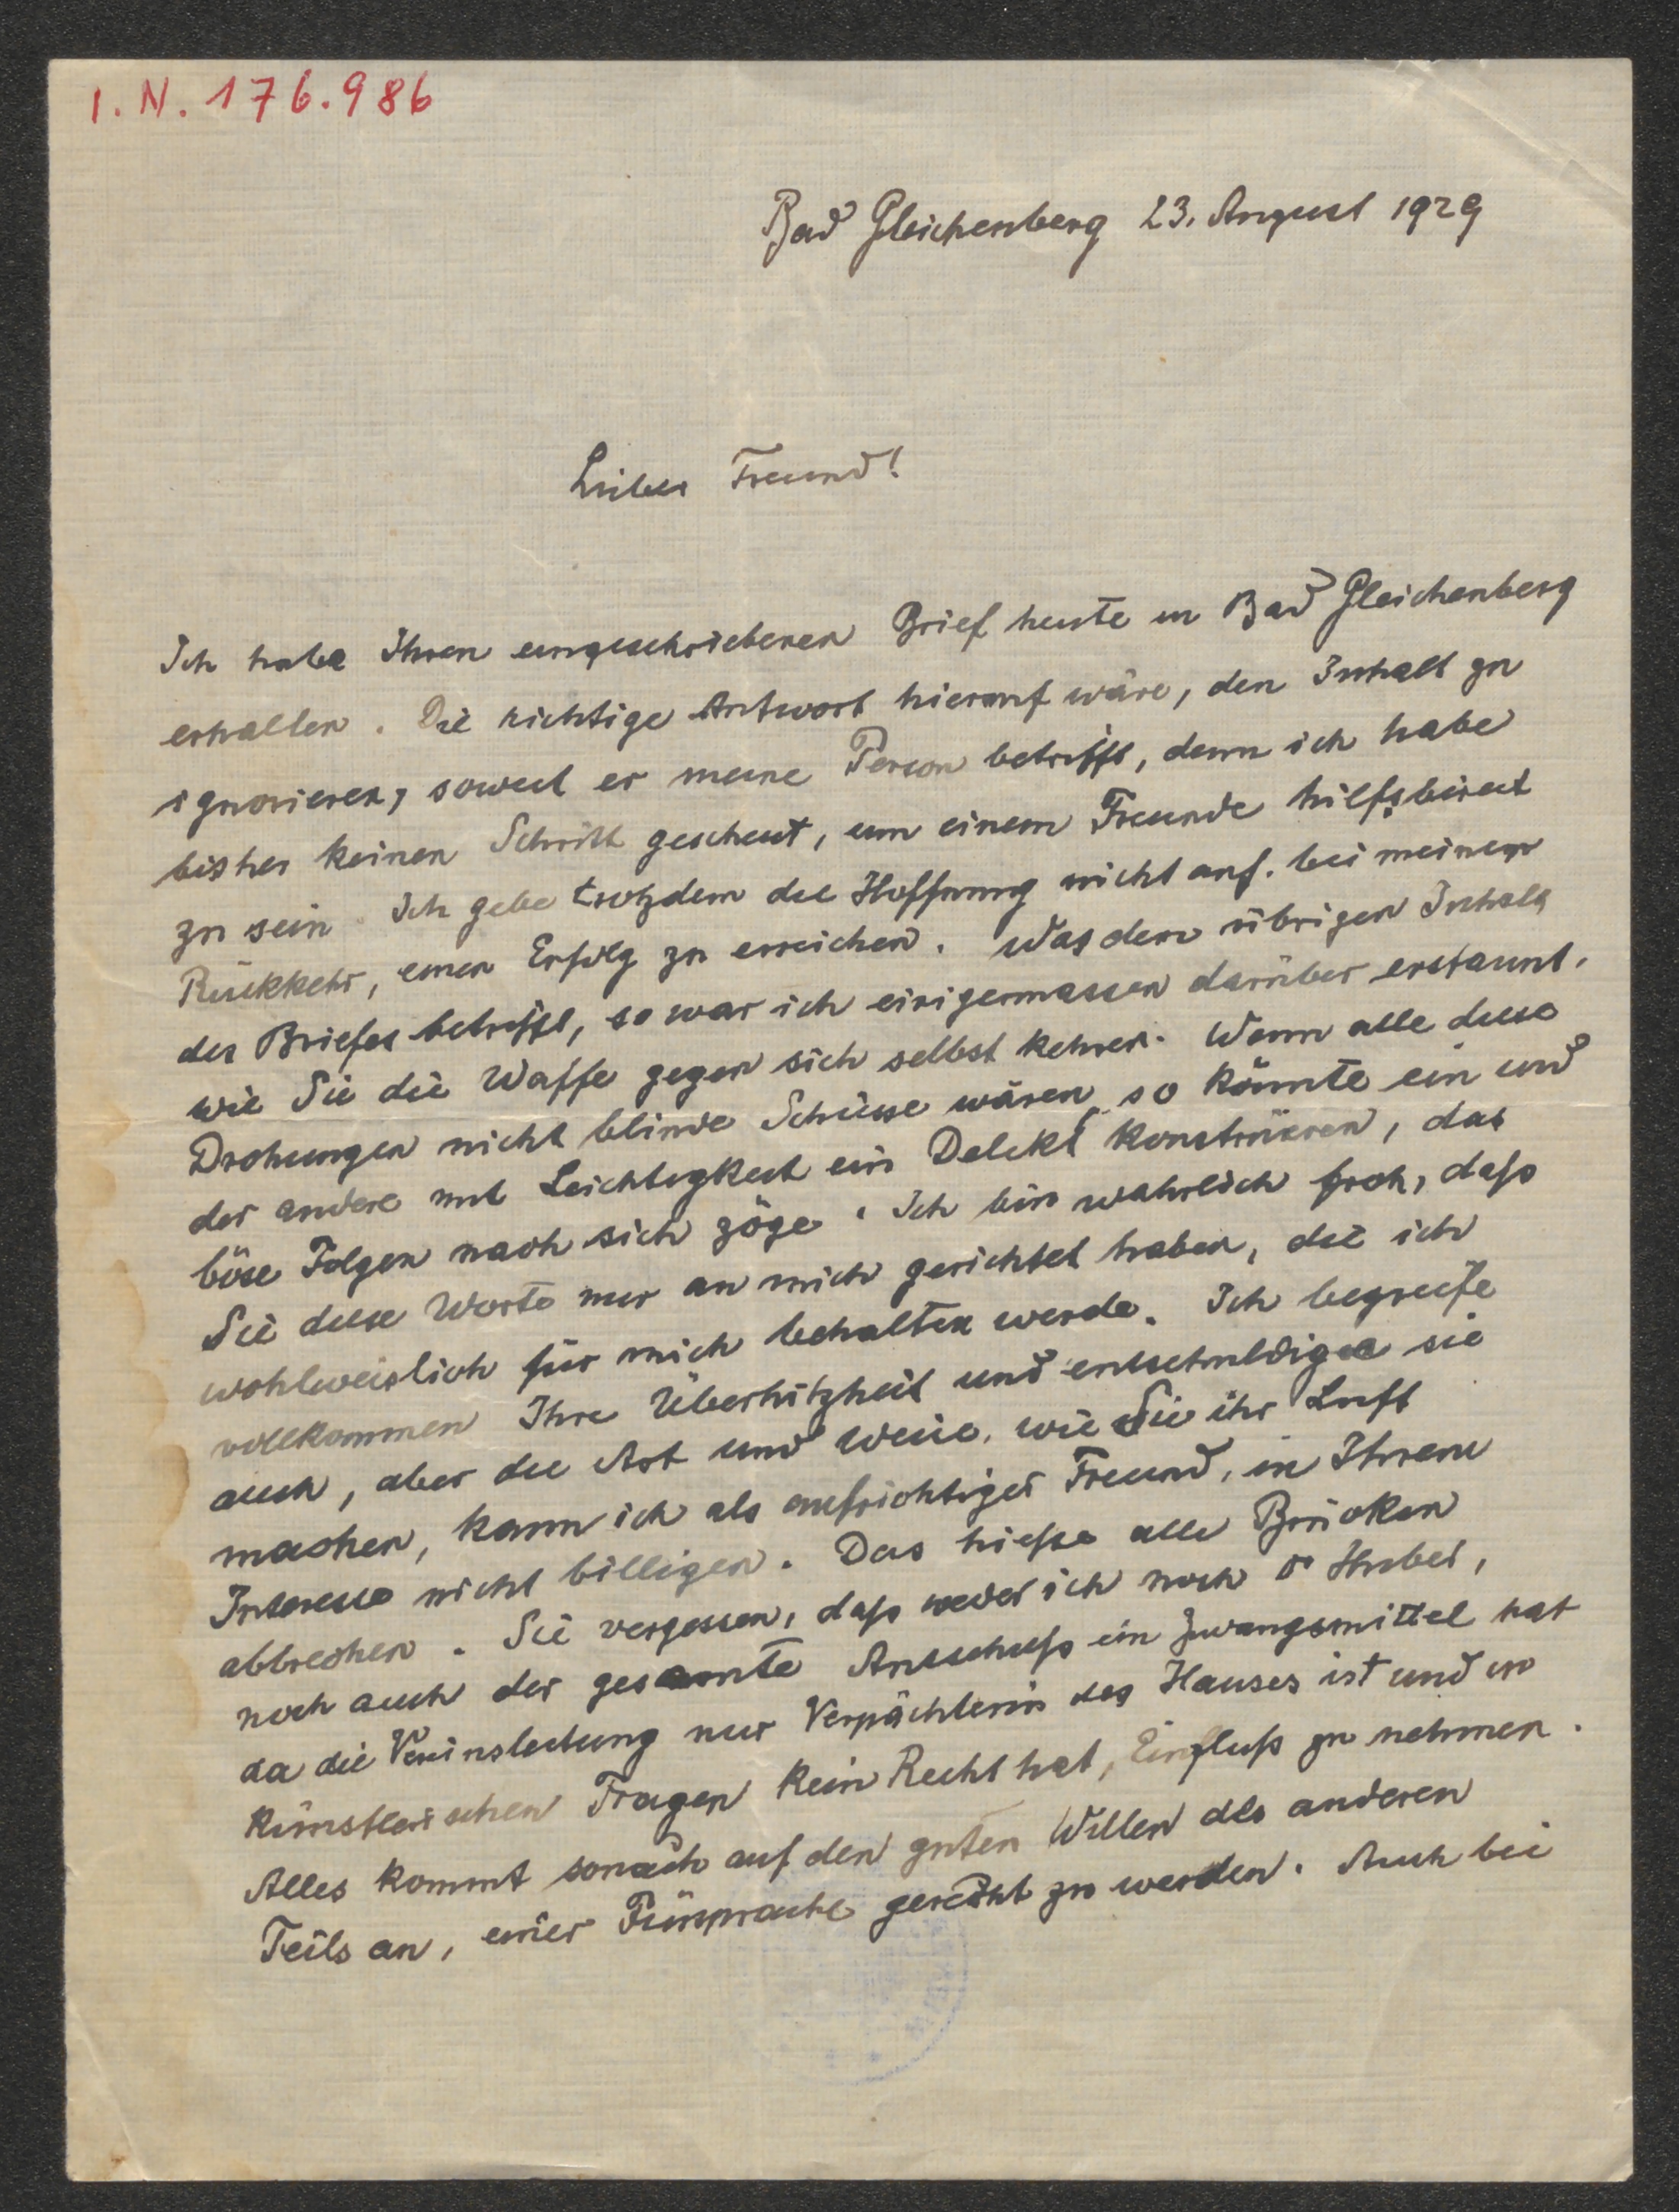 I.N. 176.986
Bad Gleichenberg 23. August 1929
Lieber Freund!
Ich habe Ihren eingeschriebenen Brief heute in Bad Gleichenberg
erhalten. Die richtige Antwort hierauf wäre, den Inhalt zu
ignorieren, soweit er meine Person betrifft, denn ich habe
bisher keinen Schritt gescheut, um einem Freunde hilfsbereit
zu sein. Ich gebe trotzdem die Hoffnung nicht auf. bei meiner
Rückkehr, einen Erfolg zu erreichen. Was den übrigen Inhalt
des Briefes betrifft, so war ich einigermassen darüber erstaunt,
wie Sie die Waffe gegen sich selbst kehren. Wenn alle diese
Drohungen nicht blinde Schüsse wären, so könnte ein und
der andere mit Leichtigkeit ein Delikt konstruieren, das
böse Folgen nach sich zöge. Ich bin wahrlich froh, daß
Sie diese Worte nur an mich gerichtet haben, die ich
wohlweislich für mich behalten werde. Ich begreife
vollkommen Ihre Überhitzheit und entschuldige sie
auch, aber die Art und Weise, wie Sie ihr Luft
machen, kann ich als aufrichtiger Freund, in Ihrem
Interesse nicht billigen. Das hieße alle Brücken
abbrechen. Sie vergessen, daß weder ich noch Dr Huber,
noch auch der gesamte Ausschuß ein Zwangsmittel hat
da die Vereinsleitung nur Verpächterin des Hauses ist und in
künstlerischen Fragen kein Recht hat, Einfluß zu nehmen.
Alles kommt sonach auf den guten Willen des anderen
Teils an, einer Fürsprache gerecht zu werden. Auch bei